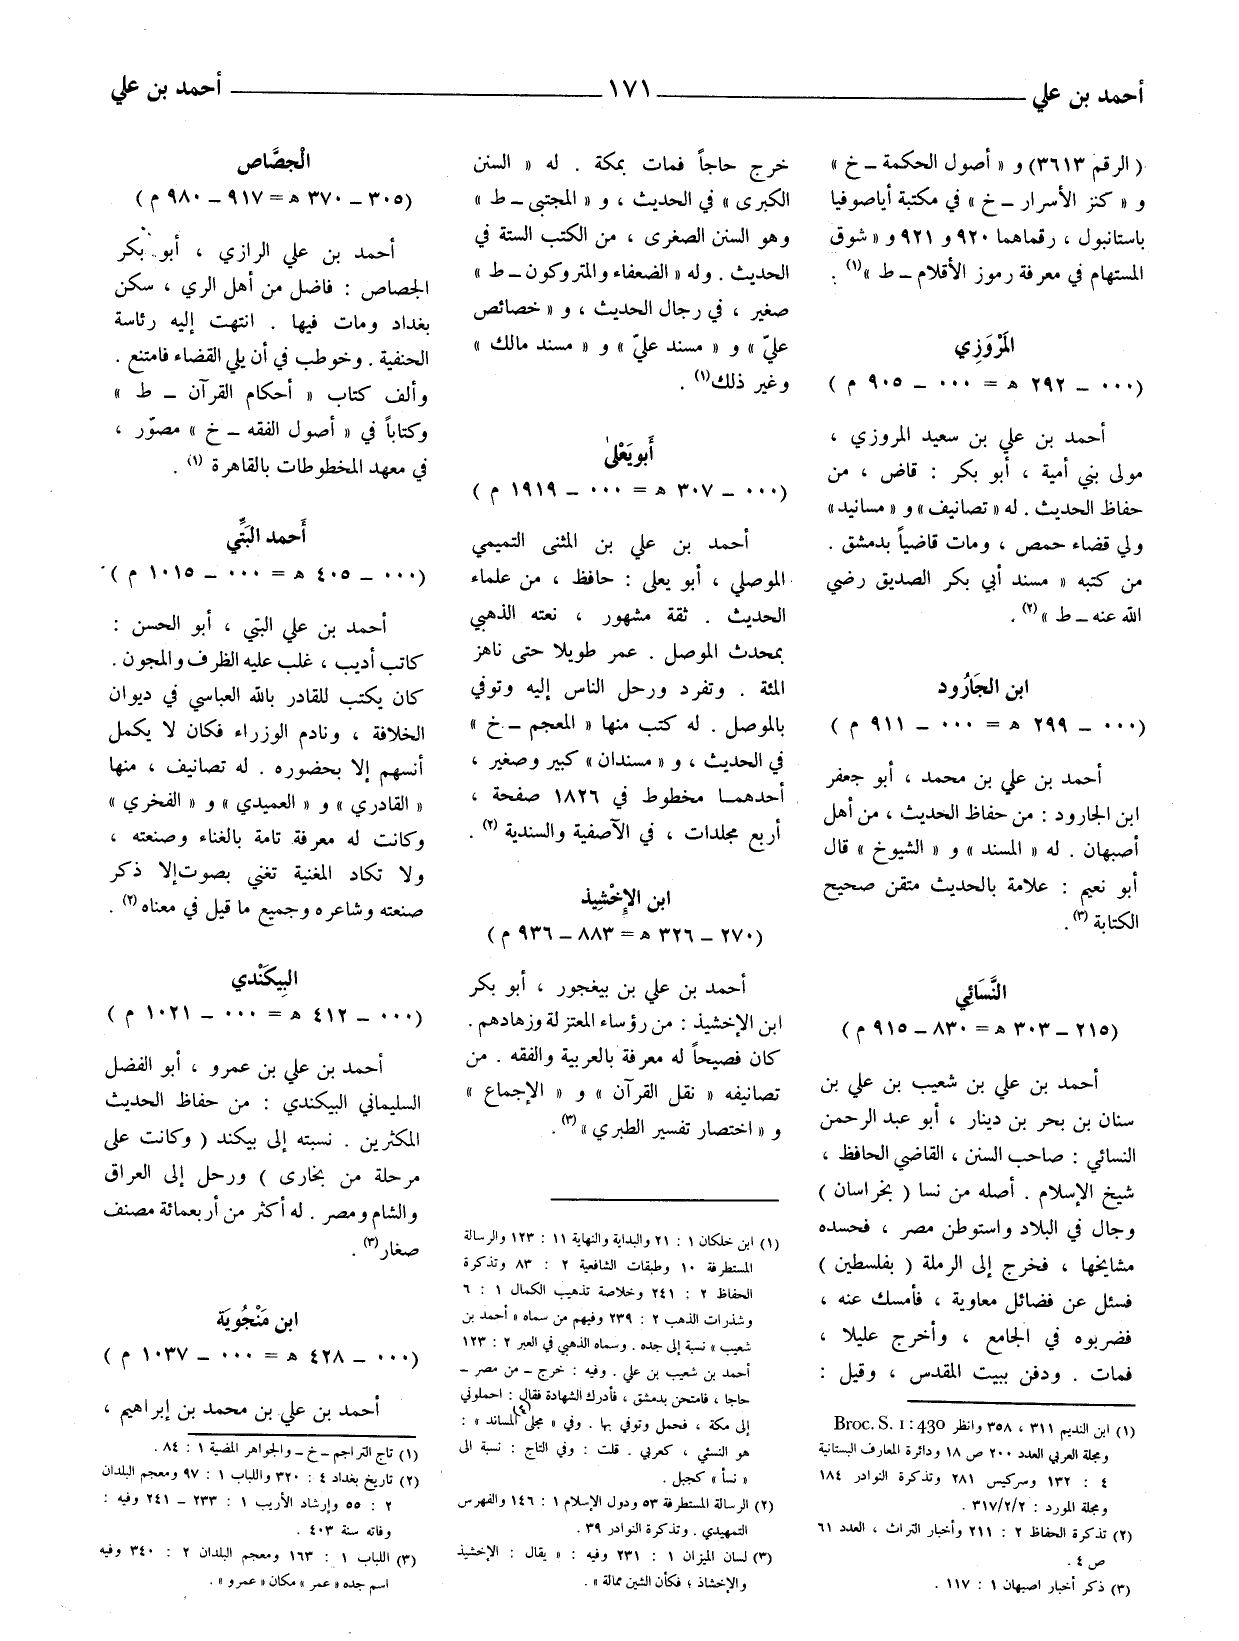 أحمد بن علي ١٧١ أحمد بن علي
( الرقم ٣٦١٣) و « أصول الحكمة ـ خ »
و « كنز الأسرار ـ خ » في مكتبة أياصوفيا
باستانبول ، رقماهما ٩٢٠ و ٩٢١ و « شوق
المستهام في معرفة رموز الأقلام ـ ط »(١) .
المَرْوَزي
(٠٠٠ ـ ٢٩٢ هـ = ٠٠٠ ـ ٩٠٥ م )
أحمد بن علي بن سعيد المروزي ،
مولى بني أمية ، أبو بكر : قاض ، من
حفاظ الحديث . له « تصانيف » و « مسانيد »
ولي قضاء حمص ، ومات قاضياً بدمشق .
من كتبه « مسند أبي بكر الصديق رضي
الله عنه ـ ط »(٢) .
ابن الجَارُود
(٠٠٠ ـ ٢٩٩ هـ = ٠٠٠ ـ ٩١١ م )
أحمد بن علي بن محمد ، أبو جعفر
ابن الجارود : من حفاظ الحديث ، من أهل
أصبهان . له « المسند » و « الشيوخ » قال
أبو نعيم : علامة بالحديث متقن صحيح
الكتابة (٣) .
النَّسَائي
(٢١٥ ـ ٣٠٣ هـ = ٨٣٠ ـ ٩١٥ م )
أحمد بن علي بن شعيب بن علي بن
سنان بن بحر بن دينار ، أبو عبد الرحمن
النسائي : صاحب السنن ، القاضي الحافظ ،
شيخ الإسلام . أصله من نسا ( بخراسان )
وجال في البلاد واستوطن مصر ، فحسده
مشايخها ، فخرج إلى الرملة ( بفلسطين )
فسئل عن فضائل معاوية ، فأمسك عنه ،
فضربوه في الجامع ، وأخرج عليلا ،
فمات . ودفن ببيت المقدس ، وقيل :
(١) ابن النديم ٣١١ ، ٣٥٨ وانظر Broc. S. 1 : 430
ومجلة العربي العدد ٢٠٠ ص ١٨ ودائرة المعارف البستانية
٤ : ١٣٢ وسركيس ٢٨١ وتذكرة النوادر ١٨٤
ومجلة المورد : ٣١٧/٢/٢ .
(٢) تذكرة الحفاظ ٢ : ٢١١ وأخبار التراث ، العدد ٦١
ص ٤ .
(٣) ذكر أخبار اصبهان ١ : ١١٧ .
خرج حاجاً فمات بمكة . له « السنن
الكبرى » في الحديث ، و « المجتبى ـ ط »
وهو السنن الصغرى ، من الكتب الستة في
الحديث . وله « الضعفاء والمتروكون ـ ط »
صغير ، في رجال الحديث ، و « خصائص
عليّ » و « مسند عليّ » و « مسند مالك »
وغير ذلك(١) .
أَبو يَعْلىٰ
(٠٠٠ ـ ٣٠٧ هـ = ٠٠٠ ـ ١٩١٩ م )
أحمد بن علي بن المثنى التميمي
الموصلي ، أبو يعلى : حافظ ، من علماء
الحديث . ثقة مشهور ، نعته الذهبي
بمحدث الموصل . عمر طويلا حتى ناهز
المئة . وتفرد ورحل الناس إليه وتوفي
بالموصل . له كتب منها « المعجم ـ خ »
في الحديث ، و « مسندان » كبير وصغير ،
أحدهمـا مخطوط في ١٨٢٦ صفحة ،
أربع مجلدات ، في الآصفية والسندية (٢) .
ابن الإِخْشِيذ
(٢٧٠ ـ ٣٢٦ هـ = ٨٨٣ ـ ٩٣٦ م )
أحمد بن علي بن بيغجور ، أبو بكر
ابن الإخشيذ : من رؤساء المعتزلة وزهادهم .
كان فصيحاً له معرفة بالعربية والفقه . من
تصانيفه « نقل القرآن » و « الإجماع »
و « اختصار تفسير الطبري »(٣) .
(١) ابن خلكان ١ : ٢١ والبداية والنهاية ١١ : ١٢٣ والرسالة
المستطرفة ١٠ وطبقات الشافعية ٢ : ٨٣ وتذكرة
الحفاظ ٢ : ٢٤١ وخلاصة تذهيب الكمال ١ : ٦
وشذرات الذهب ٢ : ٢٣٩ وفيهم من سماه « أحمد بن
شعيب » نسبة إلى جده . وسماه الذهبي في العبر ٢ : ١٢٣
أحمد بن شعيب بن علي . وفيه : خرج ـ من مصر ـ
حاجا ، فامتحن بدمشق ، فأدرك الشهادة فقال : احملوني
إلى مكة ، فحمل وتوفي بها . وفي « مجلى المساند »(٤) :
هو النسئي ، كعربي . قلت : وفي التاج : نسبة الى
« نسأ » كجبل .
(٢) الرسالة المستطرفة ٥٣ ودول الإسلام ١ : ١٤٦ والفهرس
التمهيدي . وتذكرة النوادر ٣٩ .
(٣) لسان الميزان ١ : ٢٣١ وفيه : « يقال : الإخشيذ
والإخشاذ ؛ فكأن الشين ممالة » .
الْجصَّاص
(٣٠٥ ـ ٣٧٠ هـ = ٩١٧ ـ ٩٨٠ م )
أحمد بن علي الرازي ، أبو بكر
الجصاص : فاضل من أهل الري ، سكن
بغداد ومات فيها . انتهت إليه رئاسة
الحنفية . وخوطب في أن يلي القضاء فامتنع .
وألف كتاب « أحكام القرآن ـ ط »
وكتاباً في « أصول الفقه ـ خ » مصوّر ،
في معهد المخطوطات بالقاهرة (١) .
أَحمد البَتِّي
(٠٠٠ ـ ٤٠٥ هـ = ٠٠٠ ـ ١٠١٥ م )
أحمد بن علي البتي ، أبو الحسن :
كاتب أديب ، غلب عليه الظرف والمجون .
كان يكتب للقادر بالله العباسي في ديوان
الخلافة ، ونادم الوزراء فكان لا يكمل
أنسهم إلا بحضوره . له تصانيف ، منها
« القادري » و « العميدي » و « الفخري »
وكانت له معرفة تامة بالغناء وصنعته ،
ولا تكاد المغنية تغني بصوت إلا ذكر
صنعته وشاعره وجميع ما قيل في معناه (٢) .
البِيكَنْدي
(٠٠٠ ـ ٤١٢ هـ = ٠٠٠ ـ ١٠٢١ م )
أحمد بن علي بن عمرو ، أبو الفضل
السليماني البيكندي : من حفاظ الحديث
المكثرين . نسبته إلى بيكند ( وكانت على
مرحلة من بخارى ) ورحل إلى العراق
والشام ومصر . له أكثر من أربعمائة مصنف
صغار(٣) .
ابن مَنْجُويَة
(٠٠٠ ـ ٤٢٨ هـ = ٠٠٠ ـ ١٠٣٧ م )
أحمد بن علي بن محمد بن إبراهيم ،
(١) تاج التراجم ـ خ ـ والجواهر المضية ١ : ٨٤ .
(٢) تاريخ بغداد ٤ : ٣٢٠ واللباب ١ : ٩٧ ومعجم البلدان
٢ : ٥٥ وإرشاد الأريب ١ : ٢٣٣ ـ ٢٤١ وفيه :
وفاته سنة ٤٠٣ .
(٣) اللباب ١ : ١٦٣ ومعجم البلدان ٢ : ٣٤٠ وفيه
اسم جده « عمر » مكان « عمرو » .